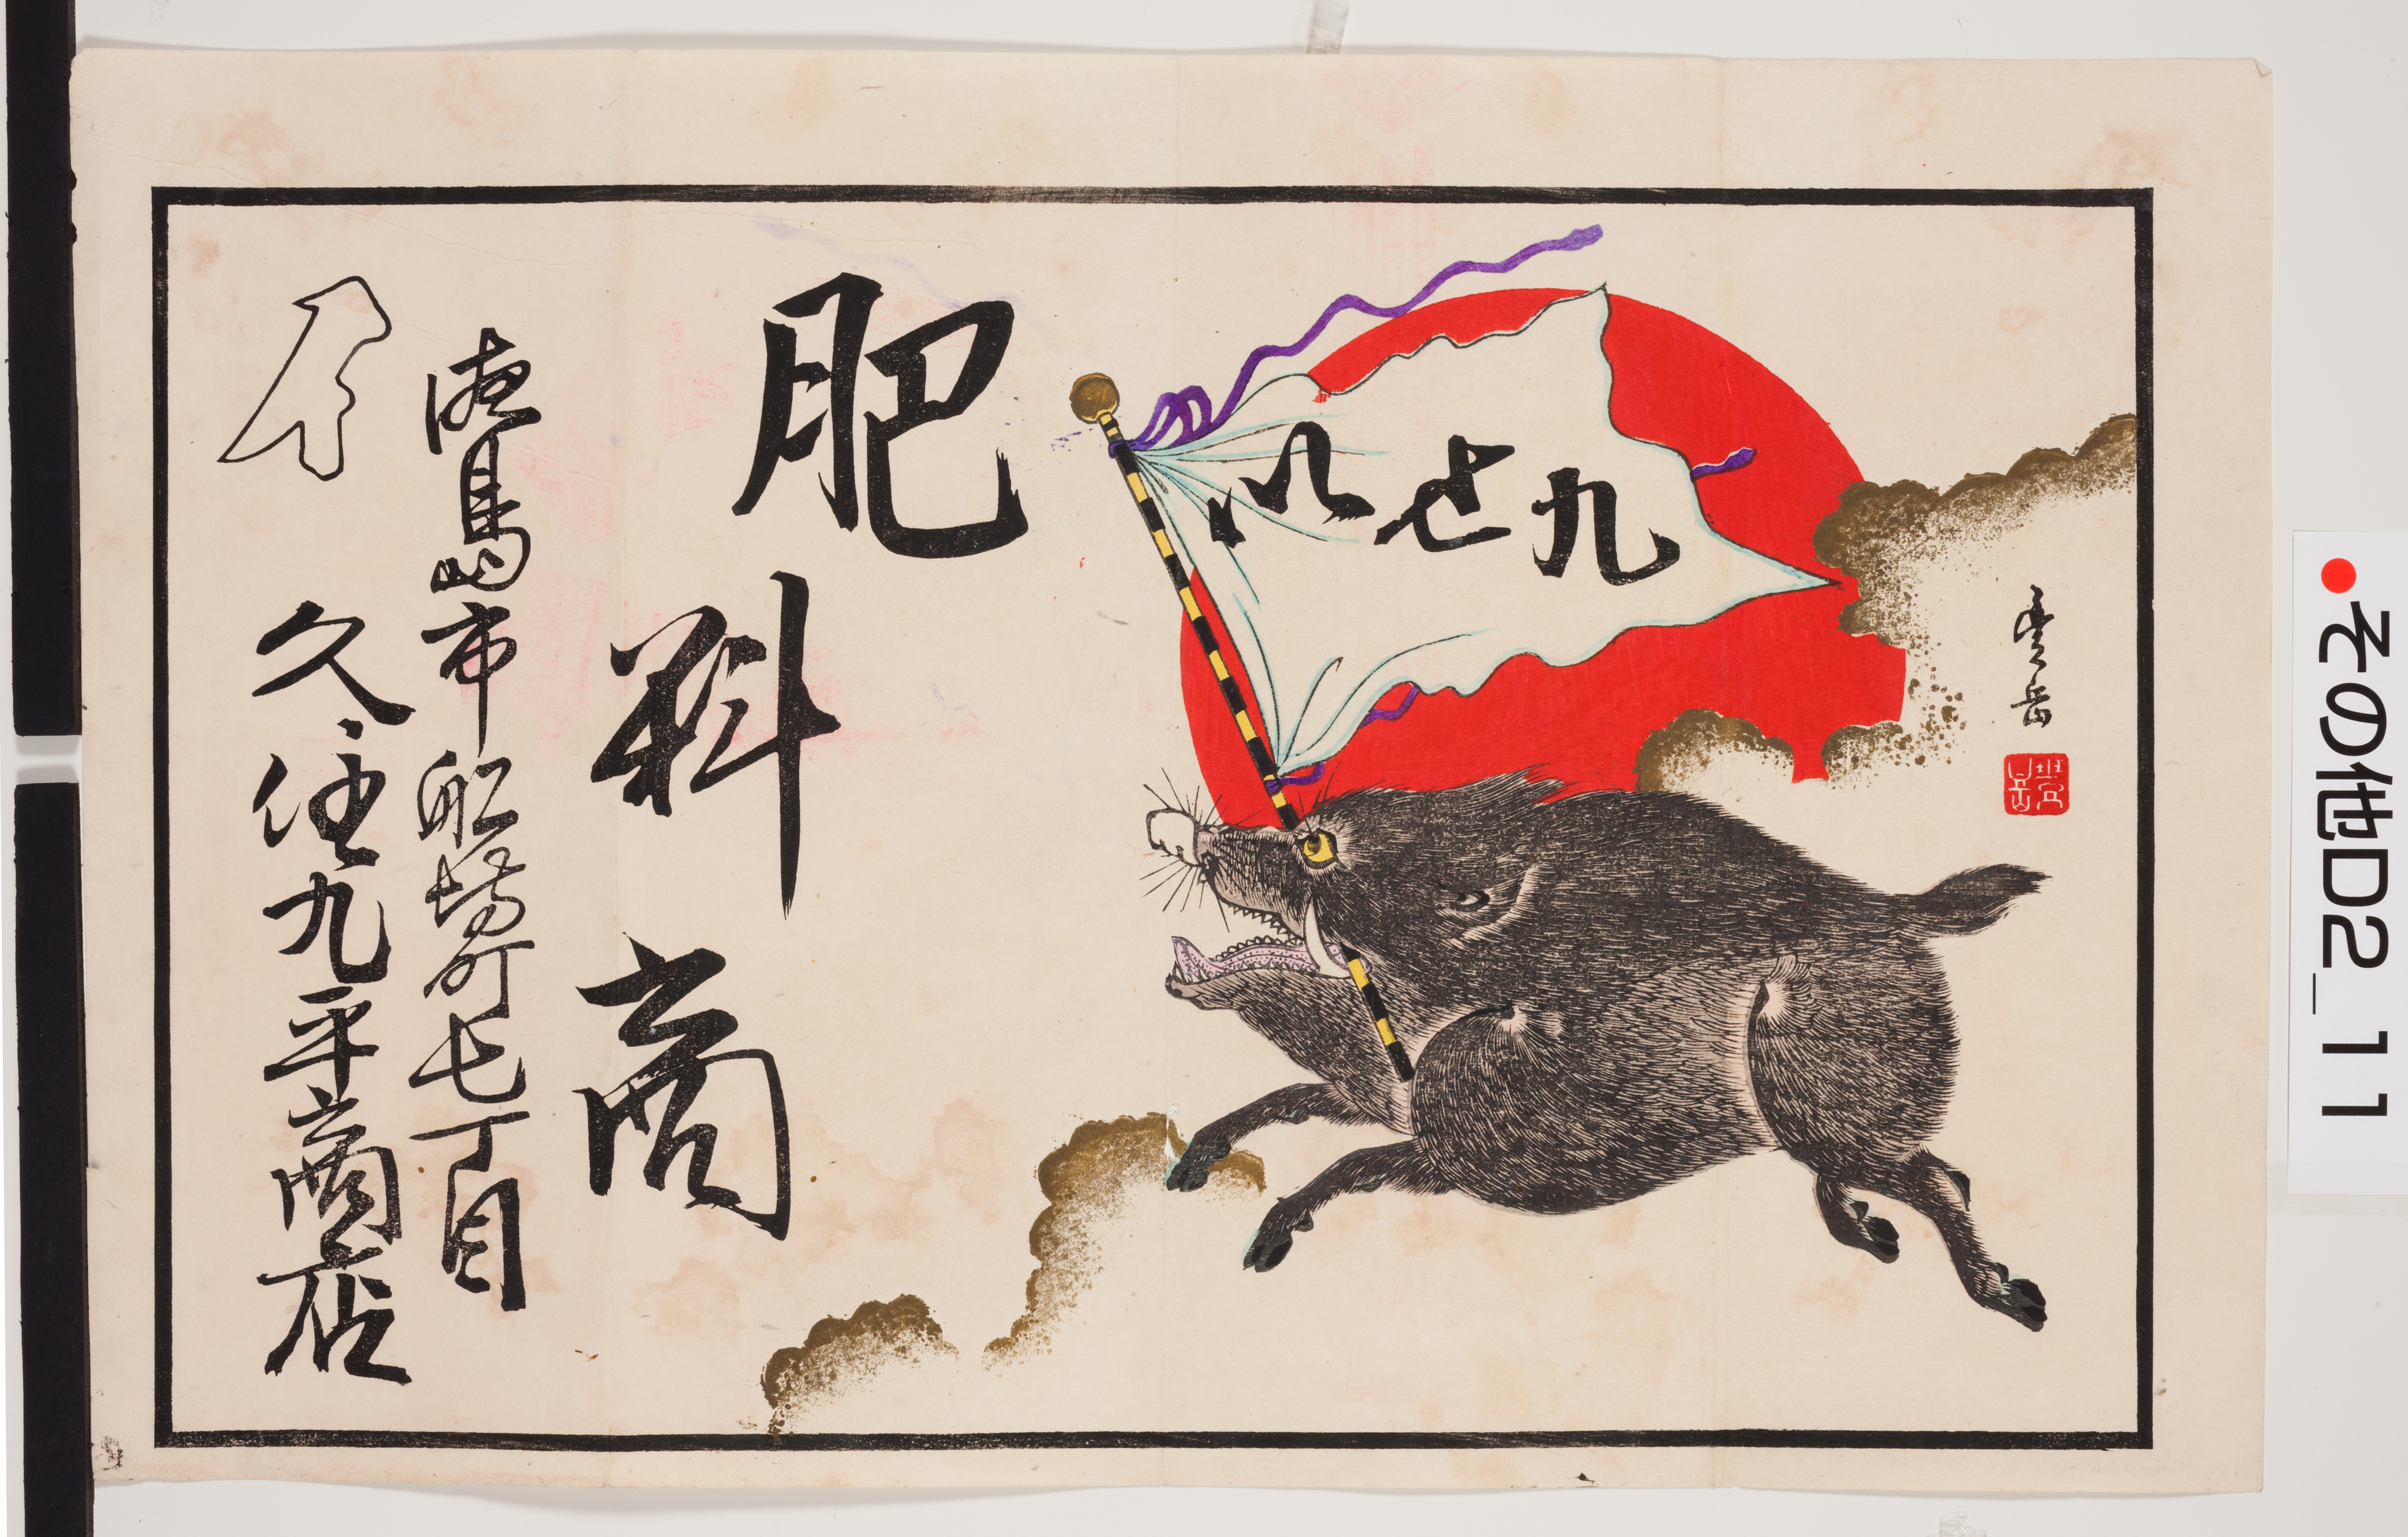 豊岳
肥料商
徳島市船場町七丁目
久住九平商店
その他D2_11